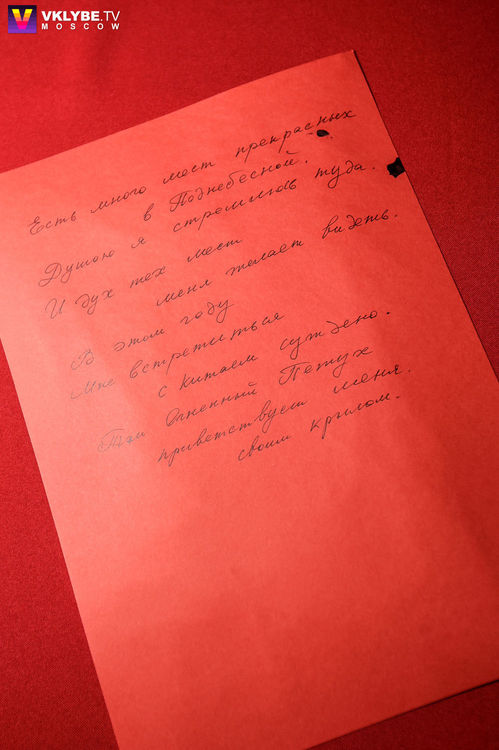 VKLYBE.TV
MOSCOW
Есть много мест прекрасных
в Поднебесной.
Душою я стремлюсь туда.
И дух тех мест
меня желает видеть.
В этом году
Мне встретиться
с Китаем суждено.
Там Огненный Петух
приветствует меня.
своим крылом.